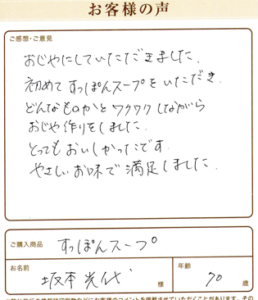 お客様の声
ご感想・ご意見
おじやにしていただきました.
初めてすっぽんスープをいただき.
どんなものかとワクワクしながら
おじや作りをしました.
とってもおいしかったです.
やさしいお味で満足しました.
ご購入商品 すっぽんスープ
お名前 坂本 光代 様
年齢 70 歳